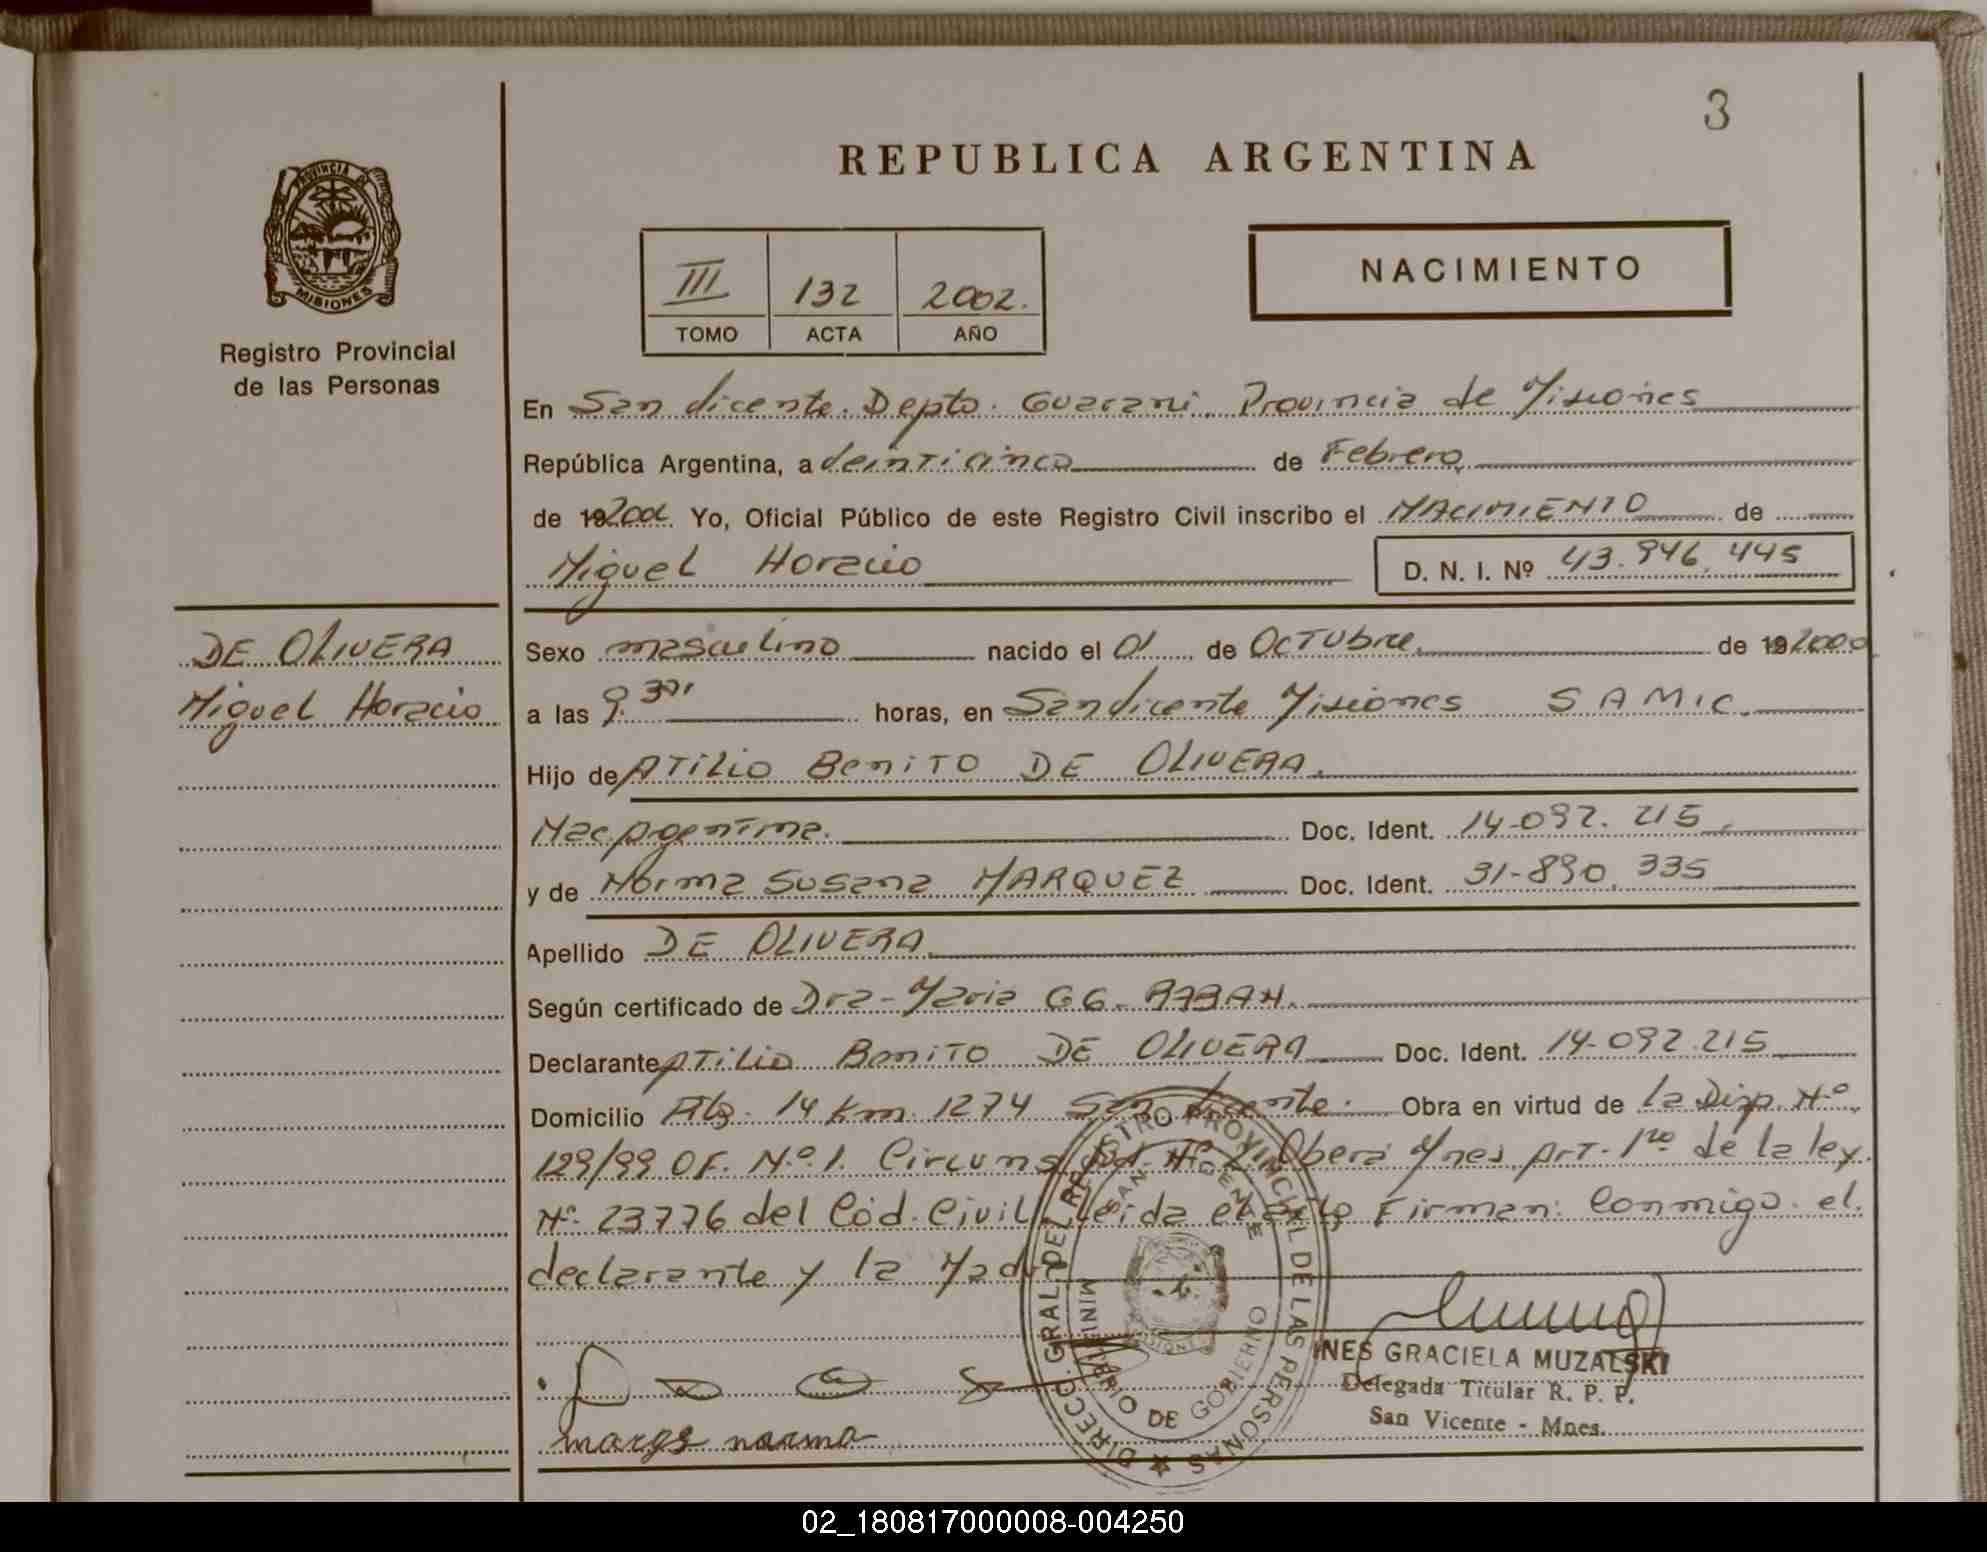 3
REPUBLICA ARGENTINA
PROVINCIA DE
MISIONES
Registro Provincial
de las Personas
III 132 2002.
TOMO ACTA AÑO
NACIMIENTO
En San Vicente. Depto. Guarani. Provincia de Misiones
República Argentina, a Veinticinco de Febrero,
de 192002. Yo, Oficial Público de este Registro Civil inscribo el NACIMIENTO de
Miguel Horacio D. N. I. Nº 43.946.445
DE OLIVERA
Miguel Horacio
Sexo masculino nacido el 01 de Octubre. de 192000
a las 9.30' horas, en San Vicente Misiones SAMIC.
Hijo de Atilio Benito DE OLIVERA.
Nac. Argentina. Doc. Ident. 14-092.215.
y de Norma Susana MARQUEZ Doc. Ident. 31-890.335
Apellido DE OLIVERA.
Según certificado de Dra- Maria GG.
Declarante Atilio Benito DE OLIVERA Doc. Ident. 14-092.215
Domicilio 14 Km. 1274 San Vicente. Obra en virtud de la Disp. Nº.
129/99 OF. Nº.1. Nº 2. Obera Mnes Art. 1ro de la ley.
Nº. 23776 del Cód. Civil. Leida el acta Firman: Conmigo. el.
declarante y la Madre
DIRECC. GRAL. DEL REGISTRO PROVINCIAL DE LAS PERSONAS
SAN VICENTE
MINISTERIO DE GOBIERNO
INES GRACIELA MUZALSKI
Delegada Titular R. P. P.
San Vicente - Mnes.
norma
02_180817000008-004250